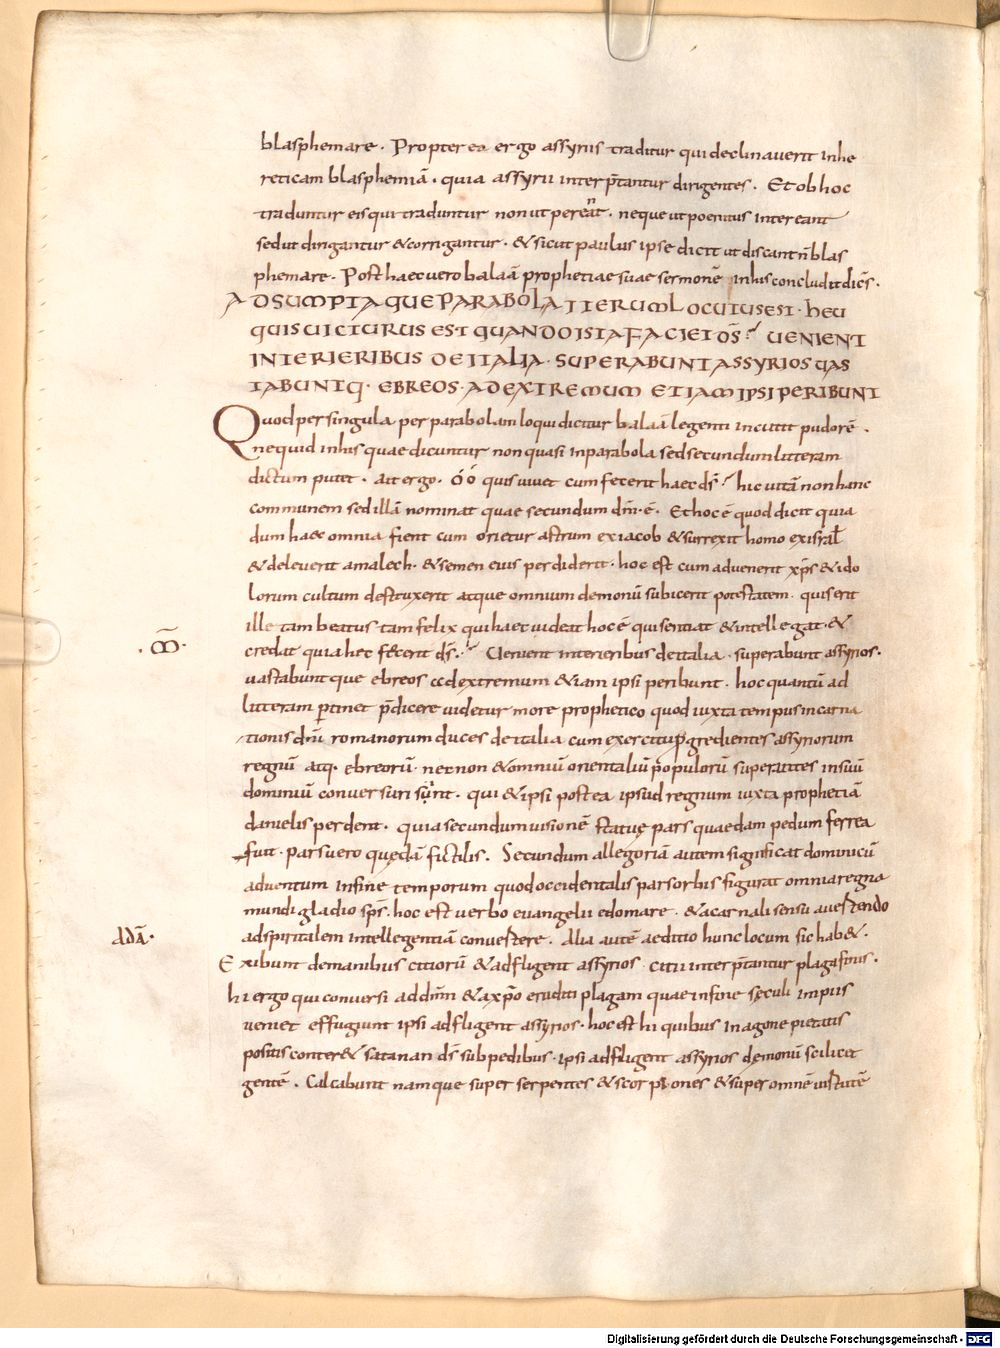 blasphemare. Propterea ergo assyriis traditur qui declinaverit in he
reticam blasphemiā. quia assyrii interp̄tantur dirigentes. Et ob hoc
traduntur eis qui traduntur non ut pereant. neque ut poenitus intereant
sed ut dirigantur & corrigantur. & sicut paulus ipse dicit ut discant n̄ blas
phemare. Post haec vero balaā prophetiae suae sermonē in his concludit dicēs.
ADSUMPTAQUE PARABOLA ITERUM LOCUTUS EST. HEU
QUIS UICTURUS EST QUANDO ISTA FACIET D̄S? UENIENT
IN TRIERIBUS DE ITALIA. SUPERABUNT ASSYRIOS UAS
TABUNTQ. EBREOS. AD EXTREMUM ETIAM IPSI PERIBUNT
Quod per singula per parabolam loqui dicitur balaā legenti incutit pudorē.
ne quid in his quae dicuntur non quasi in parabola sed secundum litteram
dictum putet. Ait ergo. ó ó quis vivet cum fecerit haec d̄s? hic vitā non hanc
communem sed illā nominat quae secundum dm̄. ē. Et hoc ē quod dicit quia
dum haec omnia fient cum orietur astrum ex iacob & surrexit homo ex isrl̄
& deleverit amalech. & semen eius perdiderit. hoc est cum advenerit xp̄s & ido
lorum cultum destruxerit atque omnium demonū subicerit potestatem. quis erit
ille tam beatus tam felix qui haec videat hoc ē qui sentiat & intellegat. &
credat quia hec fecerit d̄s.? Uenient in trieribus de italia. superabunt assyrios.
.m̄.
vastabuntque ebreos ad extremum & iam ipsi peribunt. hoc quantū ad
litteram ptinet p̄dicere videtur more prophetico quod iuxta tempus incarna
tionis dn̄i romanorum duces de italia cum exercitu p̄gredientes assyriorum
regnū atq. ebreorū. nec non & omniū orientaliū populorū superantes in suū
dominiū conversuri sunt. qui & ipsi postea ipsud regnum iuxta prophetiā
danielis perdent. quia secundum visionē statuę pars quaedam pedum ferrea
fuit. pars vero quędā fictilis. Secundum allegoriā autem significat dominicū
adventum in fine temporum quod occidentalis pars orbis figurat omnia regna
mundi gladio sp̄s. hoc est verbo euangelii edomare. & a carnali sensu avertendo
ad spiritalem intellegentiā convertere. Alia autē aeditio hunc locum sic hab&.
adā.
Exibunt de manibus citiorū & adfligent assyrios. citii interp̄tantur plaga finis.
hi ergo qui conversi ad dm̄ & a xp̄o eruditi plagam quae in fine sęculi impiis
veniet effugiunt ipsi adfligent assyrios. hoc est hi quibus in agone pietatis
positis conter& satanan d̄s sub pedibus. ipsi adfligent assyrios demonū scilicet
gentē. Calcabunt namque super serpentes & scorpiones & super omnē virtutē